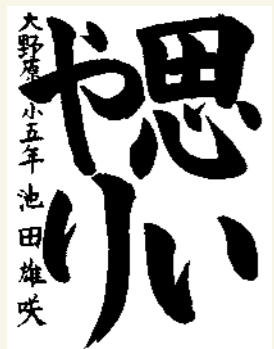 思い
やり
大野原小五年 池田雄咲